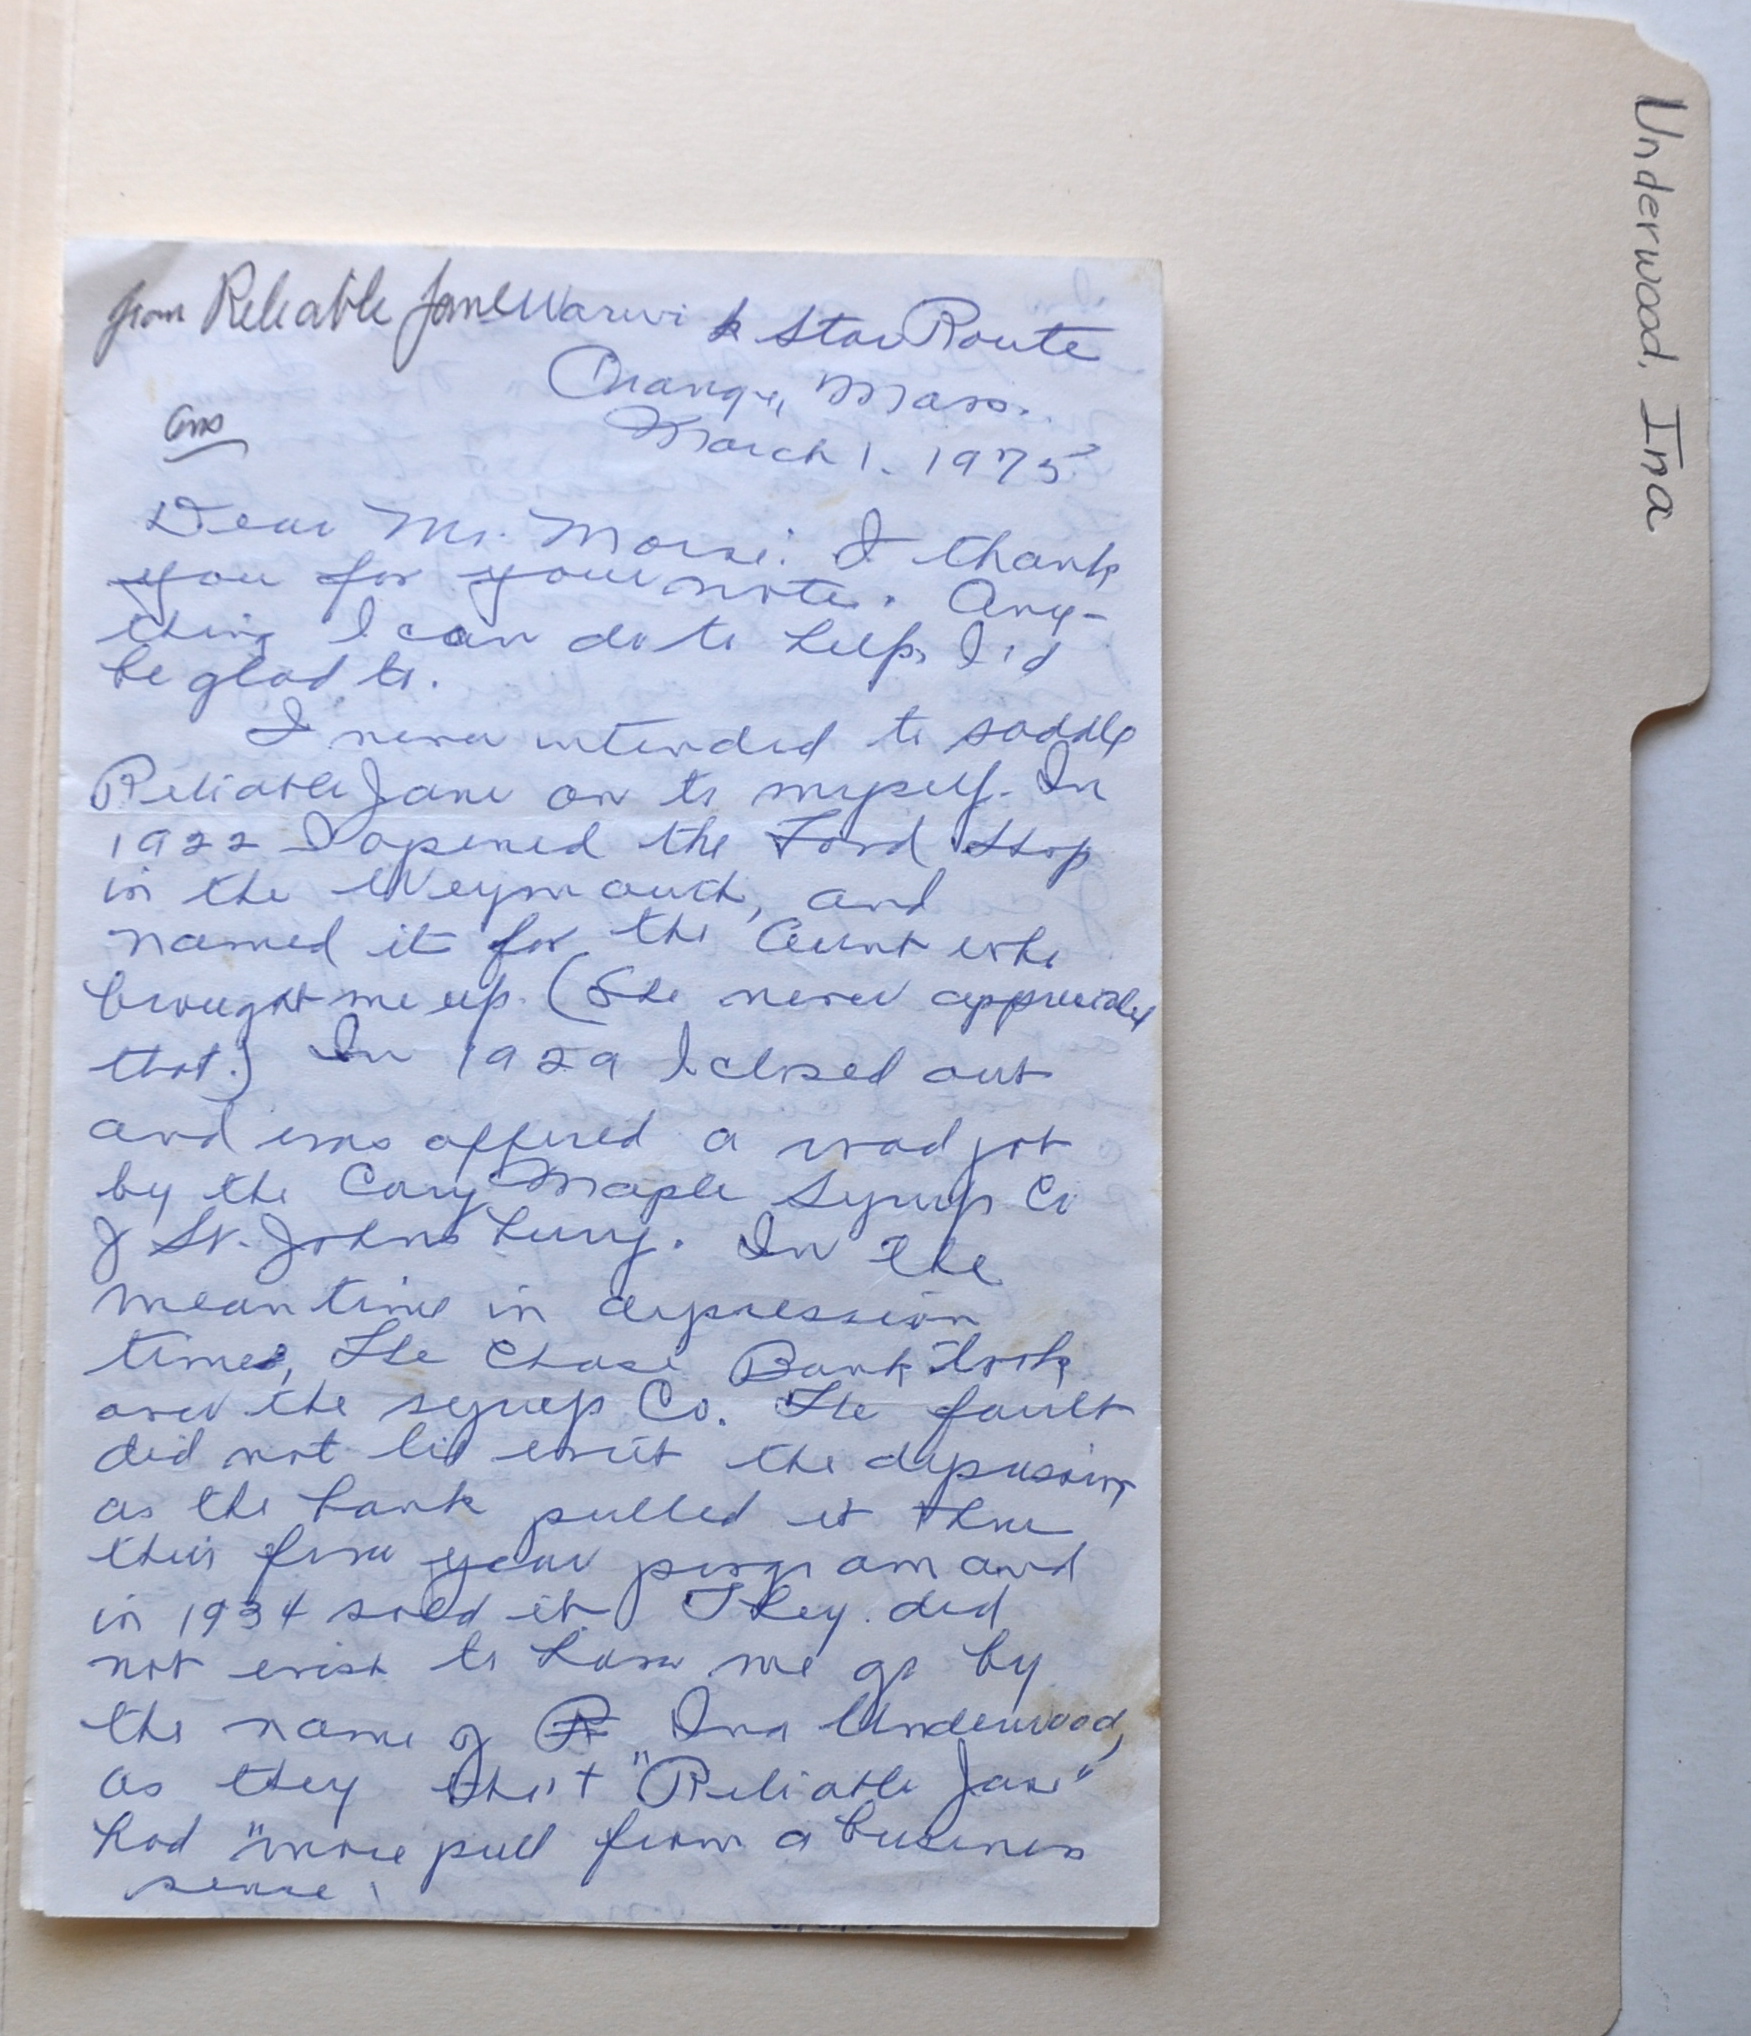 Underwood, Ina
from Reliable Jane Warwick Star Route
Orange, Mass.
Ans
March 1. 1975
Dear Mr. Morse: I thank
you for your note. Any-
thing I can do to help I'd
be glad to.
I never intended to saddle
Reliable Jane on to myself. In
1922 I opened the Food Shop
in the Weymouth, and
named it for the Aunt who
brought me up. (She never appreciated
that.) In 1929 I closed out
and was offered a road job
by the Cary Maple Syrup Co
of St. Johnsbury. In the
meantime in depression
times, the Chase Bank took
over the syrup Co. The fault
did not lie with the depression
as the bank pulled it thru
their five year program and
in 1934 sold it. They did
not wish to have me go by
the name of R Ina Underwood,
as they tho't "Reliable Jane"
had "more pull from a business
sense.